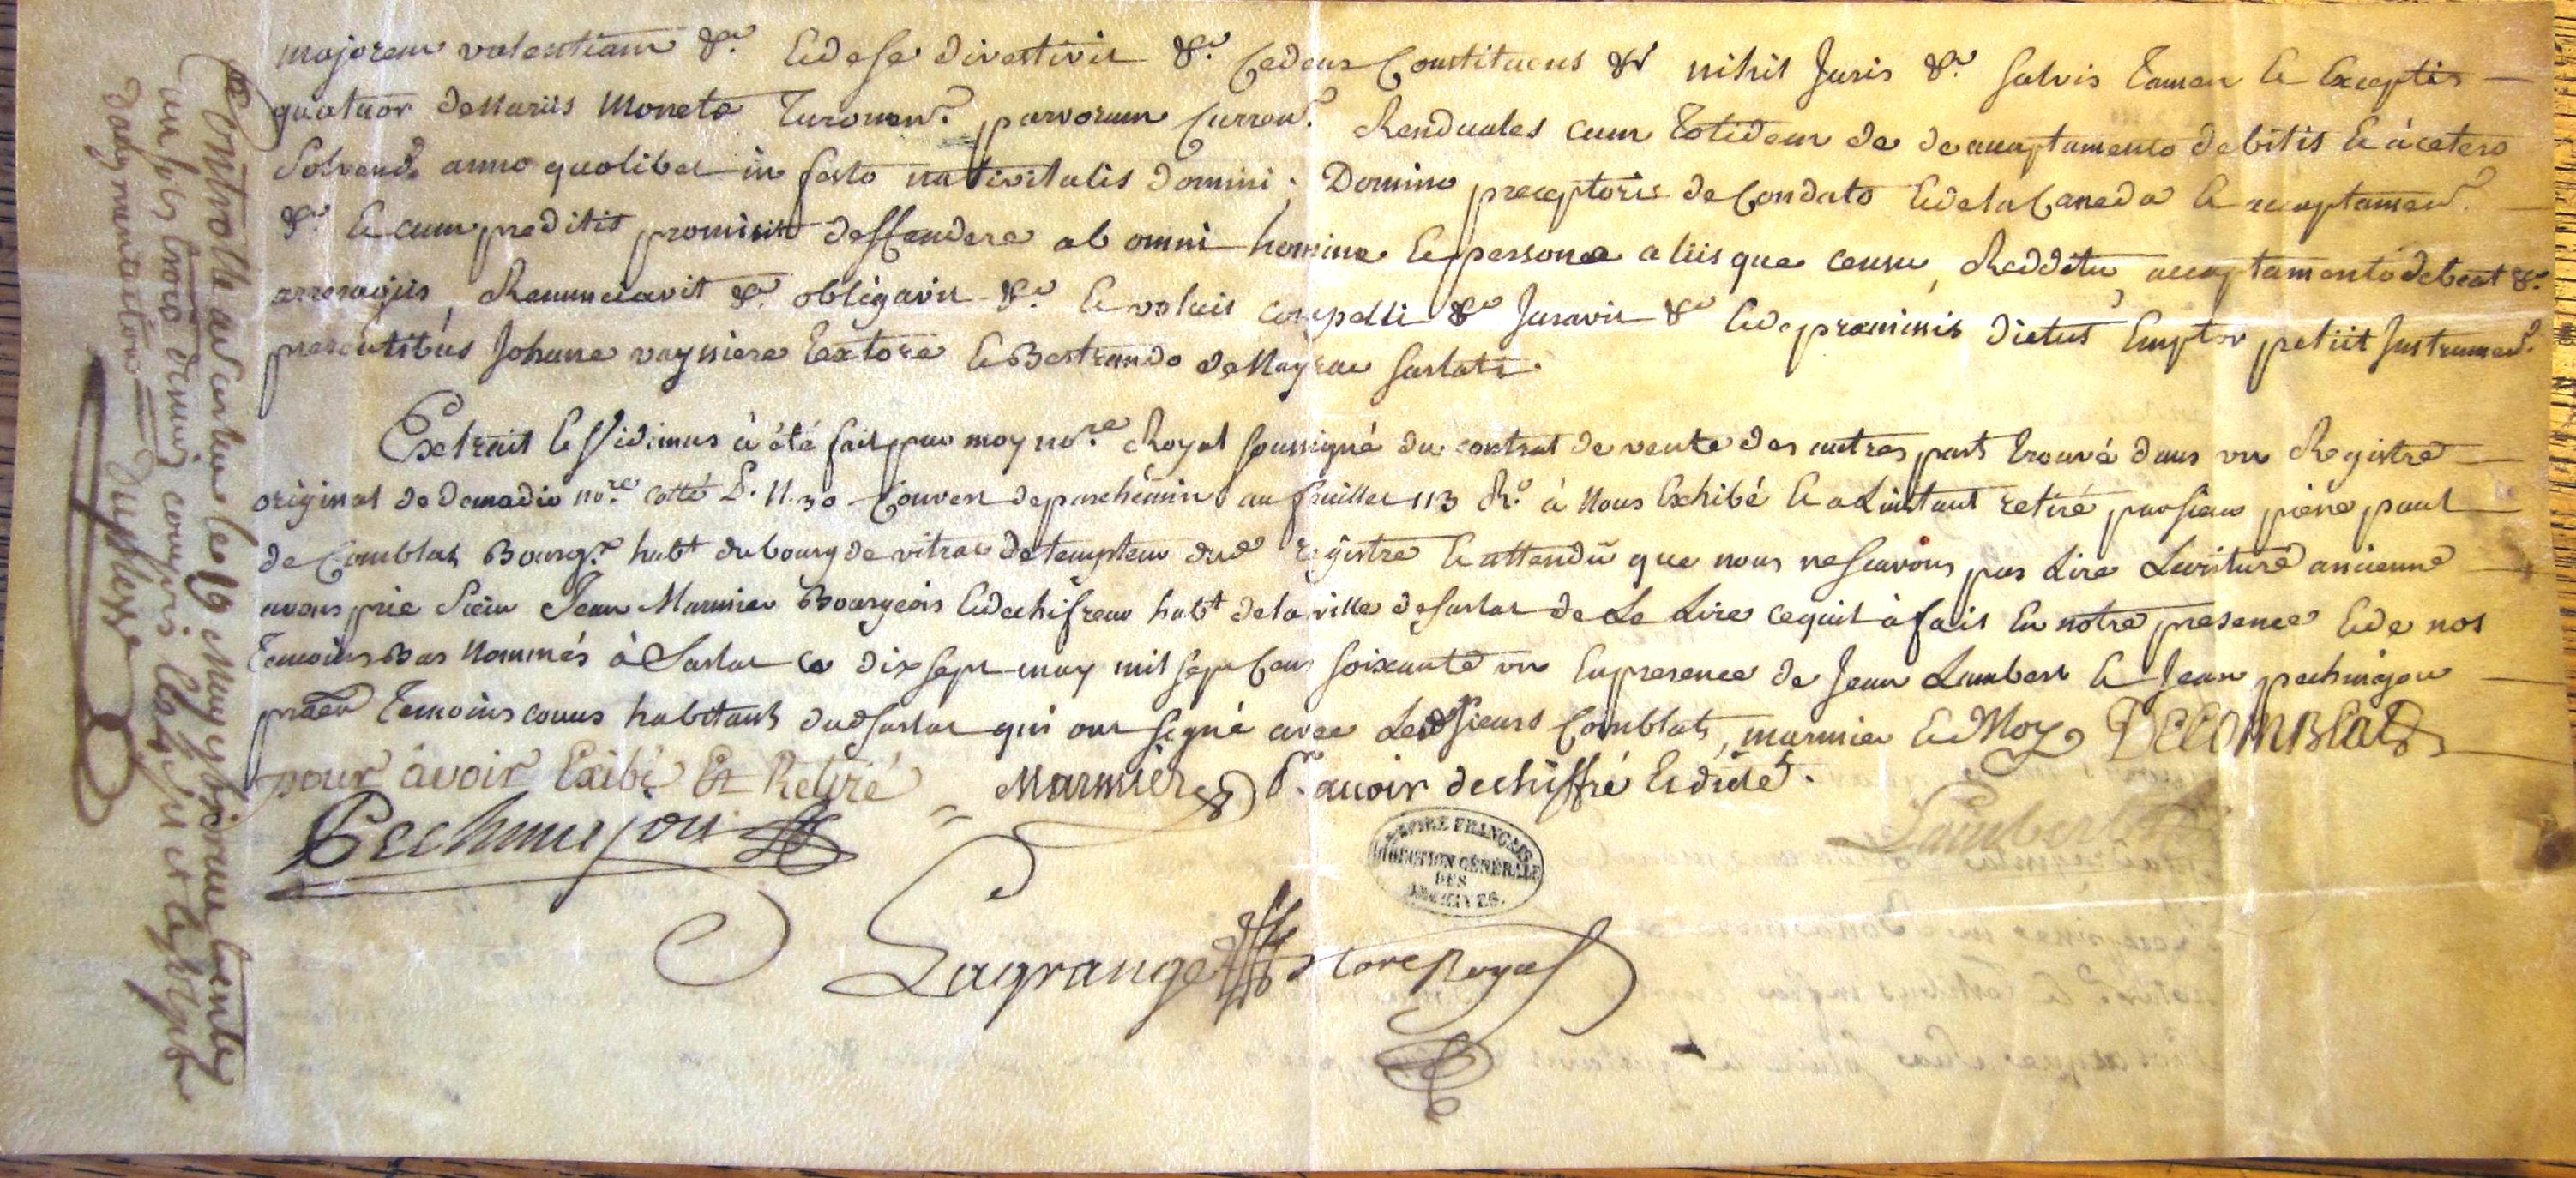 majorem valentiam &a. Et de se divestivit &a. Cedens Constituens &a nihil Juris &a. Salvis Tamen et Exceptis
quatuor denariis Moneta Turonen. parvorum Curren. Renduales cum Totidem de de acaptamento debitis et à cetero
Solvend. anno quolibet in festo nativitatis Domini. Domino preceptoris de Condato et de la Caneda et acaptamen.
&a. et cum preditis promisit deffendere ab omni homine et persona aliisque censu, Redditu, acaptamento debeat &a.
arreragiis, Renunciavit &a. obligavit &a. et voluit compelli &a Juravit &a Et de premimis dictus Emptor petiit Instrumen.
presentibus Johane vayniere Textore et Bertrando de Mayrac Sarlati.
Extrait et Vidimus à été fait par moy nore. Royal soussigné du contrat de vente des autres parts trouvé dans un Registre
original de Demadie nore. cotté L. N. 30 Couvert de parchemin au feuillet 113 Ro. à Nous Exhibé et a Linstant retiré par sieur piere paul
de Comblat Bourgs. habt du bourg de vitrac detempteur dud registre et attendu que nous ne scavons pas Lire Lecriture ancienne
avons prie Sieur Jean Marmier Bourgeois et dechifreur habt de la ville de sarlat de Le Lire ce quil à fait En notre presence et de nos
Temoins Bas Nommés à Sarlat ce dix sept may mil sept Cens soixante un En presence de Jean Lambert et Jean pechmajou
praen Temoins conus habitants dud sarlat qui ont signé avec Lesd sieurs Comblat, marmier et Moy DECOMBLAT
pour avoir Exibé Et Retiré Marmier pr. avoir dechiffré et dicté.
Pechmejou
Lambert
EMPIRE FRANÇAIS
DIRECTION GÉNÉRALE
DES
ARCHIVES.
Lagrange Nore Royal
Controllé a Sarlat le 19 May 1761 reçu trente
un sols trois deniers compris les
d'augmentation
Duplesse